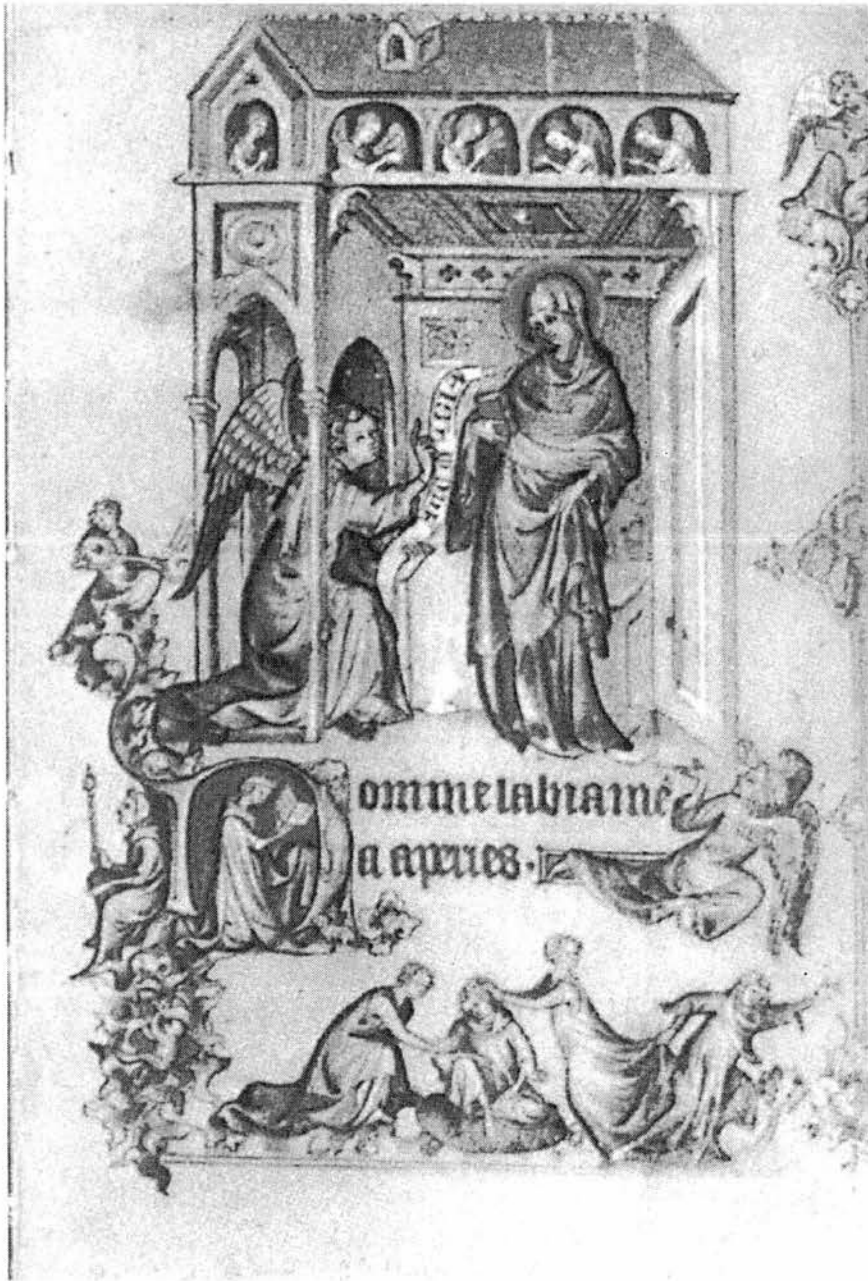 D
omine labia me
a aperies.